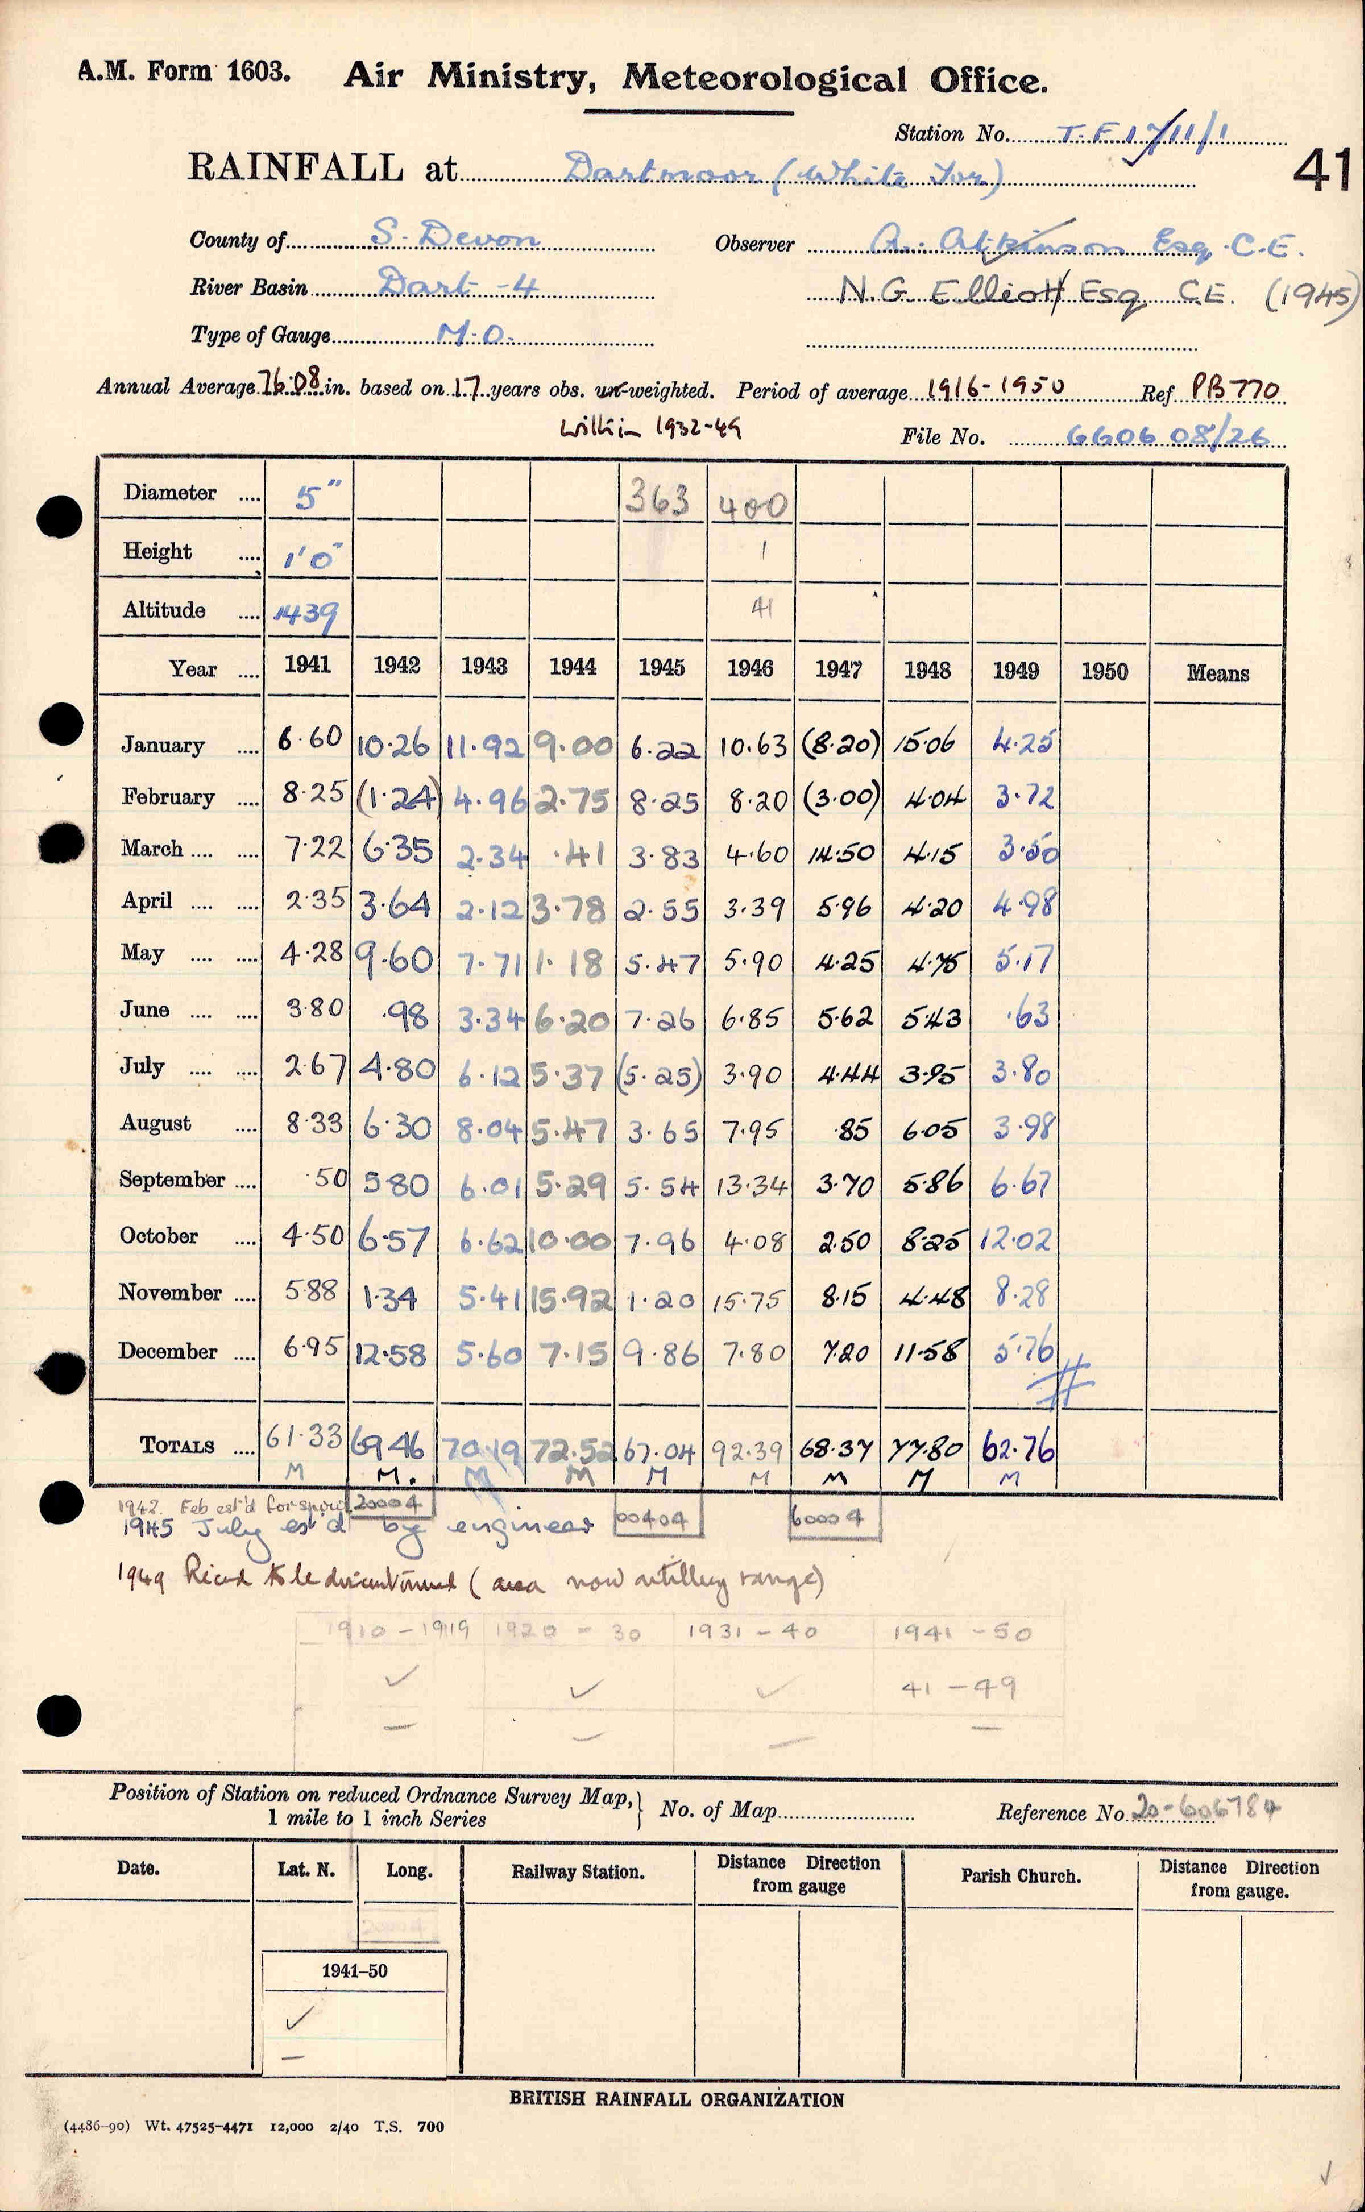 A.M. Form 1603. Air Ministry, Meteorological Office.
Station No. T.F 17/11/1
RAINFALL at Dartmoor (White Tor)
41
County of S. Devon Observer A. Atkinson Esq. C.E.
River Basin Dart -4 N.G. Elliott Esq C.E. (1945)
Type of Gauge M.O.
Annual Average 76.08 in. based on 17 years obs. un-weighted. Period of average 1916-1950 Ref PB770
1932-49
File No. 660608/26
Diameter .... 5" 363 400
Height .... 1'0" 1
Altitude .... 1439 41
Year .... 1941 1942 1943 1944 1945 1946 1947 1948 1949 1950 Means
January .... 6.60 10.26 11.92 9.00 6.22 10.63 (8.20) 15.06 4.25
February .... 8.25 (1.24) 4.96 2.75 8.25 8.20 (3.00) 4.04 3.72
March .... .... 7.22 6.35 2.34 .41 3.83 4.60 14.50 4.15 3.50
April .... .... 2.35 3.64 2.12 3.78 2.55 3.39 5.96 4.20 4.98
May .... .... 4.28 9.60 7.71 1.18 5.47 5.90 4.25 4.75 5.17
June .... .... 3.80 .98 3.34 6.20 7.26 6.85 5.62 5.43 .63
July .... .... 2.67 4.80 6.12 5.37 (5.25) 3.90 4.44 3.95 3.80
August .... 8.33 6.30 8.04 5.47 3.65 7.95 .85 6.05 3.98
September .... .50 5.80 6.01 5.29 5.54 13.34 3.70 5.86 6.67
October .... 4.50 6.57 6.62 10.00 7.96 4.08 2.50 8.25 12.02
November .... 5.88 1.34 5.41 15.92 1.20 15.75 8.15 4.48 8.28
December .... 6.95 12.58 5.60 7.15 9.86 7.80 7.20 11.58 5.76
TOTALS .... 61.33 69.46 70.19 72.52 67.04 92.39 68.37 77.80 62.76
M M. M M M M M M M
1942. Feb est'd for snow 20004
1945 July est'd by engineer 00404 60004
1949 Record to be discontinued (area now artillery range)
1910-1919 1920-30 1931-40 1941-50
✓ ✓ ✓ 41-49
– – – –
Position of Station on reduced Ordnance Survey Map,} No. of Map Reference No. 20-606784
1 mile to 1 inch Series
Date. Lat. N. Long. Railway Station. Distance Direction from gauge Parish Church. Distance Direction from gauge.
20004
1941–50
✓
–
BRITISH RAINFALL ORGANIZATION
(4486–90) Wt. 47525–4471 12,000 2/40 T.S. 700
✓